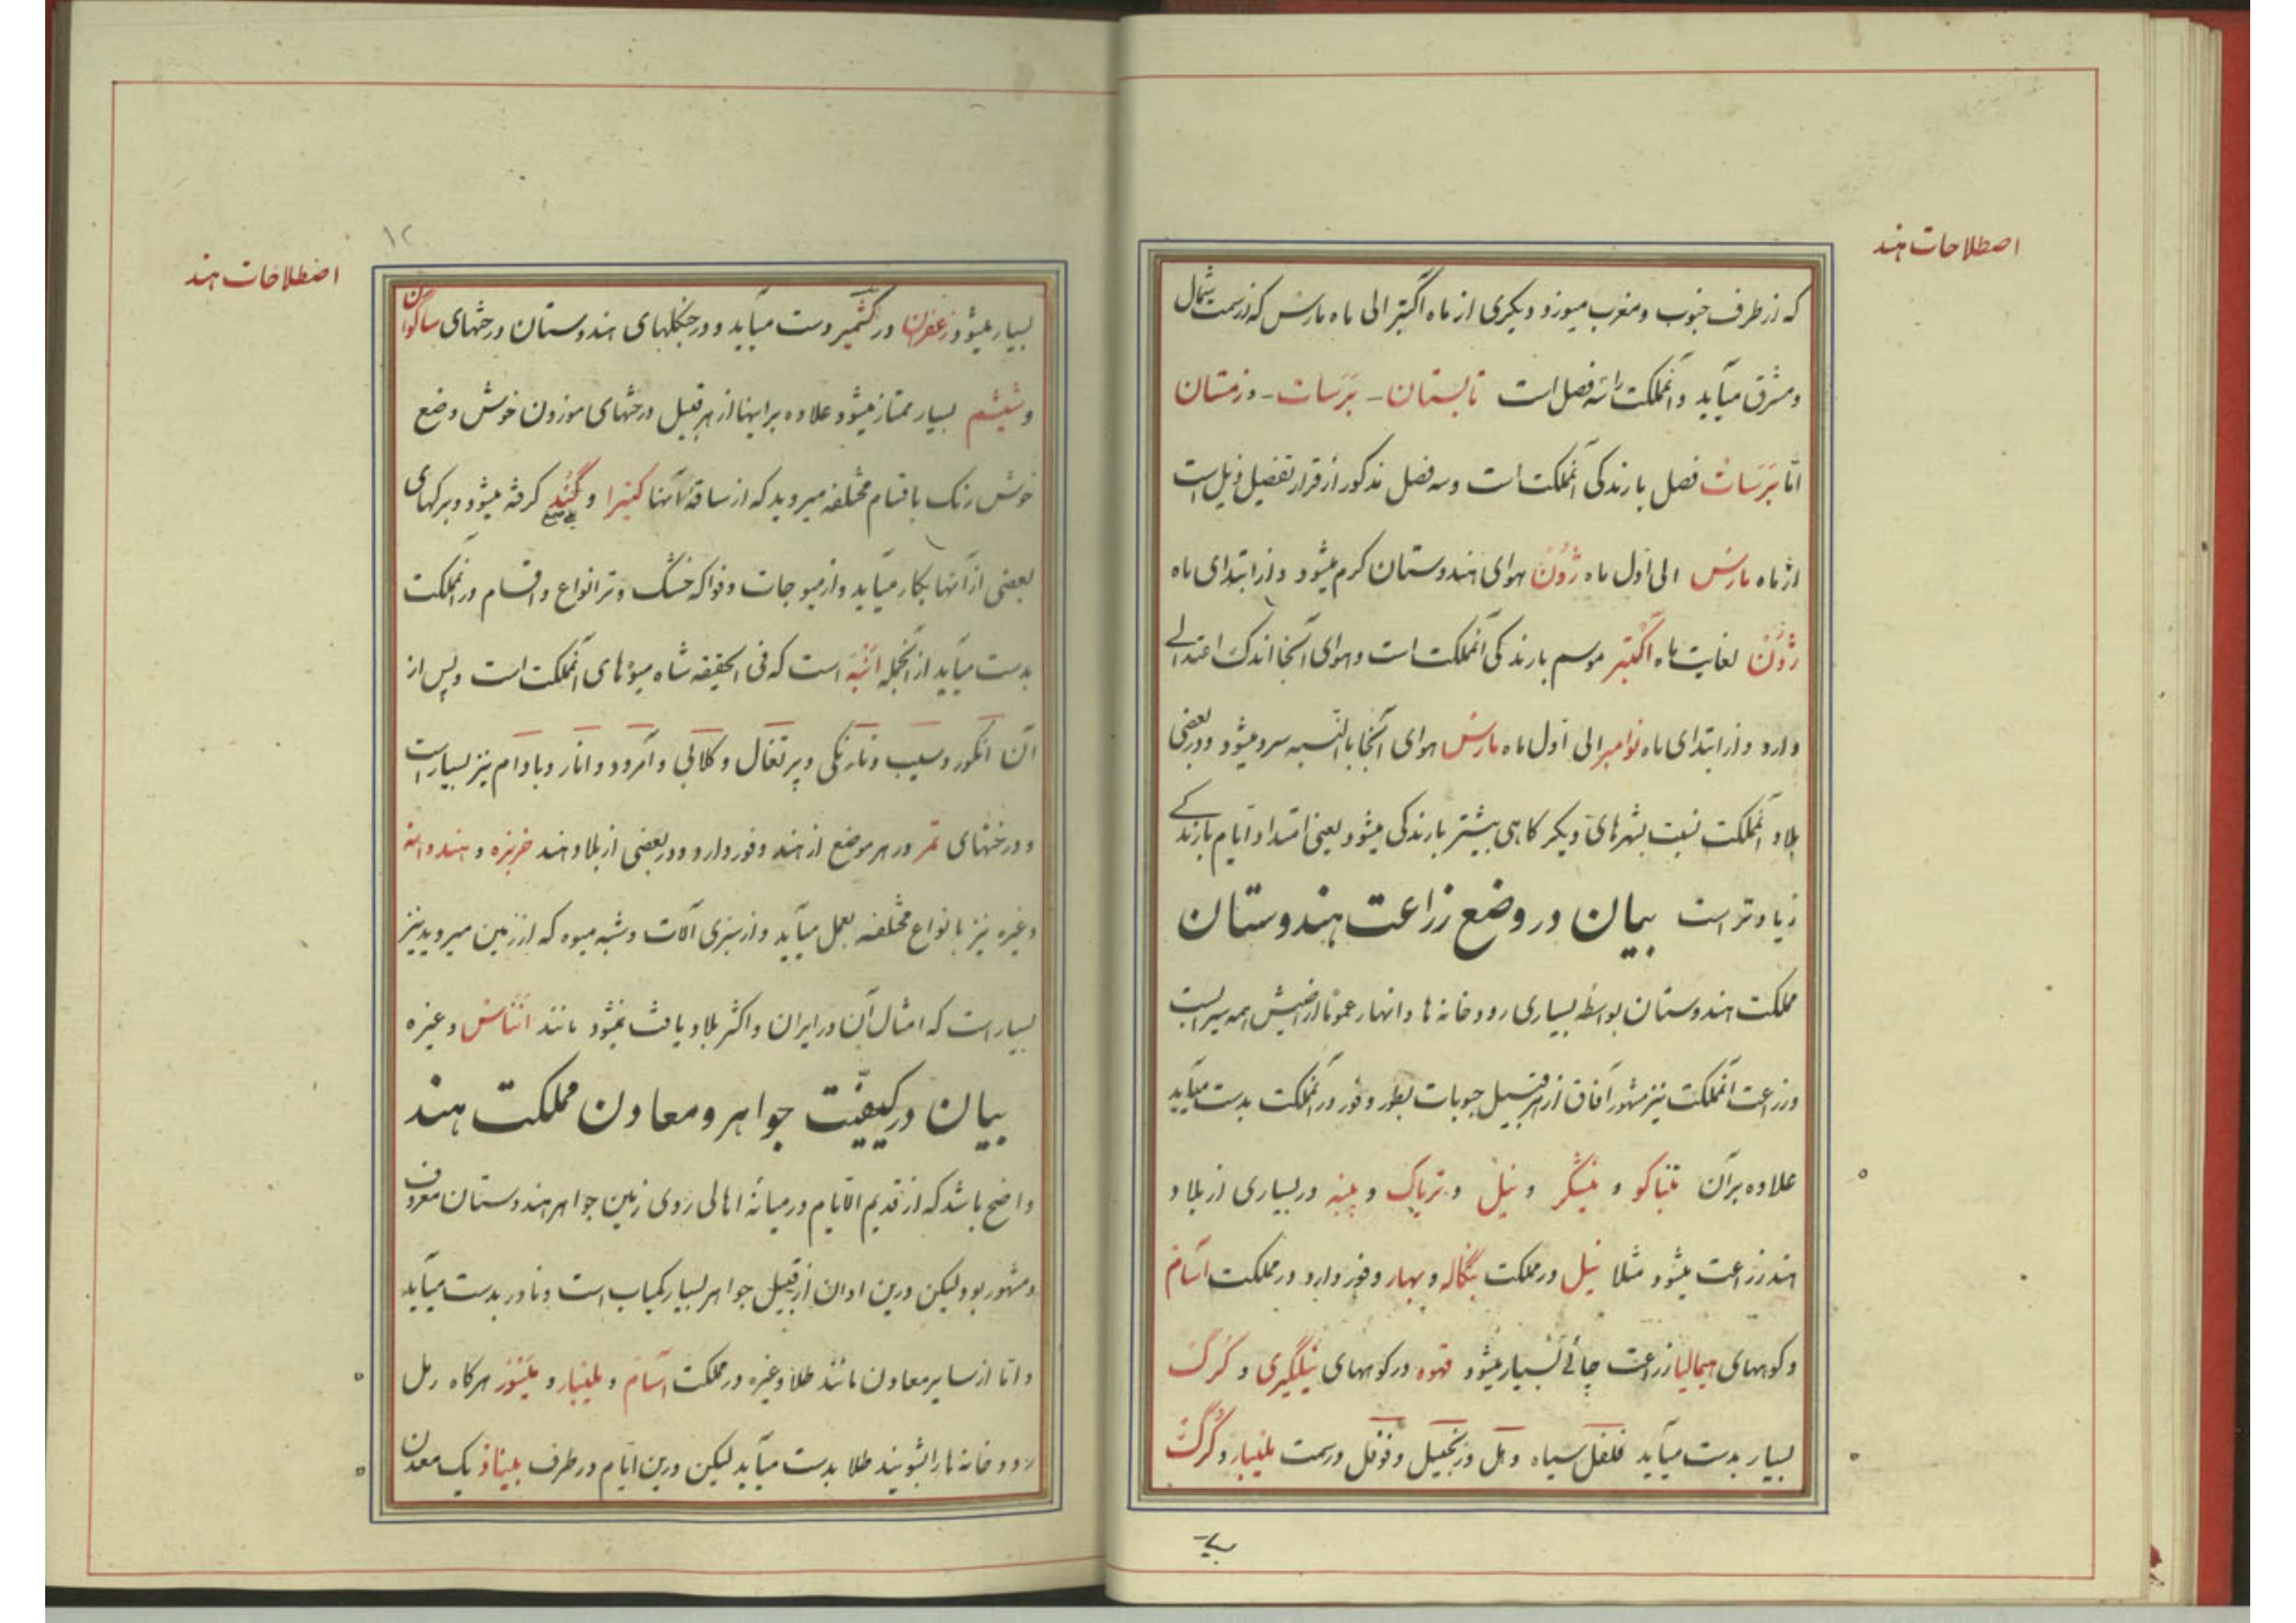 اصطلاحات هند
که از طرف جنوب و مغرب میوزد و دیگری از ماه اکتبر الی ماه مارس که از سمت شمال
و مشرق میآید و آنمملکت را سه فصل است تابستان - بَرَسات - و زمستان
امّا بَرَسات فصل بارندکی آنمملکت است و سه فصل مذکور از قرار تفصیل ذیل است
از ماه مارس الی اول ماه ژُون هوای هندوستان کرم میشود و از ابتدای ماه
ژُون لغایت ماه اکتبر موسم بارندکی آنمملکت است و هوای آنجا اندک اعتدالے
دارد و از ابتدای ماه نوامبر الی اول ماه مارس هوای آنجا بالنّسبه سرد میشود و در بعضی
بلاد آنمملکت نسبت بشهرهای دیکر کاهی بیشتر بارندکی میشود یعنی امتداد ایام بارندکے
زیادتر است بیان در وضع زراعت هندوستان
مملکت هندوستان بواسطه بسیاری رودخانه ها و انهار عموماً اراضیش همه سیرابست
و زراعت آنمملکت نیز مشهور آفاق از هر قبیل حبوبات بطور وفور در آنمملکت بدست میآید
علاوه بر آن تنباکو و نیشکر و نیل و تریاک و پنبه در بسیاری از بلاد
هند زراعت میشود مثلا نیل در مملکت بنگاله و بهار وفور دارد در مملکت آسام
و کوههای هیمالیا زراعت چائے بسیار میشود قهوه در کوههای نیلگیری و کُرگ
بسیار بدست میآید فلفل سیاه و هل و زنجبیل و فوفل در سمت ملیبار و کُرگ
بسیار
۱۲
اصطلاحات هند
بسیار میشود زعفران در کشمیر دست میآید و در جنکلهای هندوستان درختهای ساگوان
و شیشم بسیار ممتاز میشود علاوه بر اینها از هر قبیل درختهای موزون خوش وضع
خوش رنک باقسام مختلفه میروید که از ساقهٔ آنها کتیرا و گُند کرفته میشود و برکهای
صمغ
بعضی از آنها بکار میآید و از میوجات و فواکه خشک و تر انواع و اقسام در آنمملکت
بدست میآید از آنجمله انبه است که فی الحقیقه شاه میوهای آنمملکت است و پس از
آن انکور و سیب و نارنکی و پرتغال و کلابی و آمرود و انار و بادام نیز بسیار است
و درختهای تمر در هر موضع از هند وفور دارد و در بعضی از بلاد هند خربزه و هندوانه
و غیره نیز بانواع مختلفه بعمل میآید و از سبزی آلات و شبه میوه که از زمین میروید نیز
بسیار است که امثال آن در ایران و اکثر بلاد یافت نمیشود مانند انناس و غیره
بیان در کیفیّت جواهر و معادن مملکت هند
واضح باشد که از قدیم الایام در میانهٔ اهالی روی زمین جواهر هندوستان معروف
و مشهور بود لیکن درین اوان از قبیل جواهر بسیار کمیاب است و نادر بدست میآید
و امّا از سایر معادن مانند طلا و غیره در مملکت آسام و ملیبار و میسور هرکاه رمل
رودخانه ها را بشویند طلا بدست میآید لیکن درین ایام در طرف یک معدن